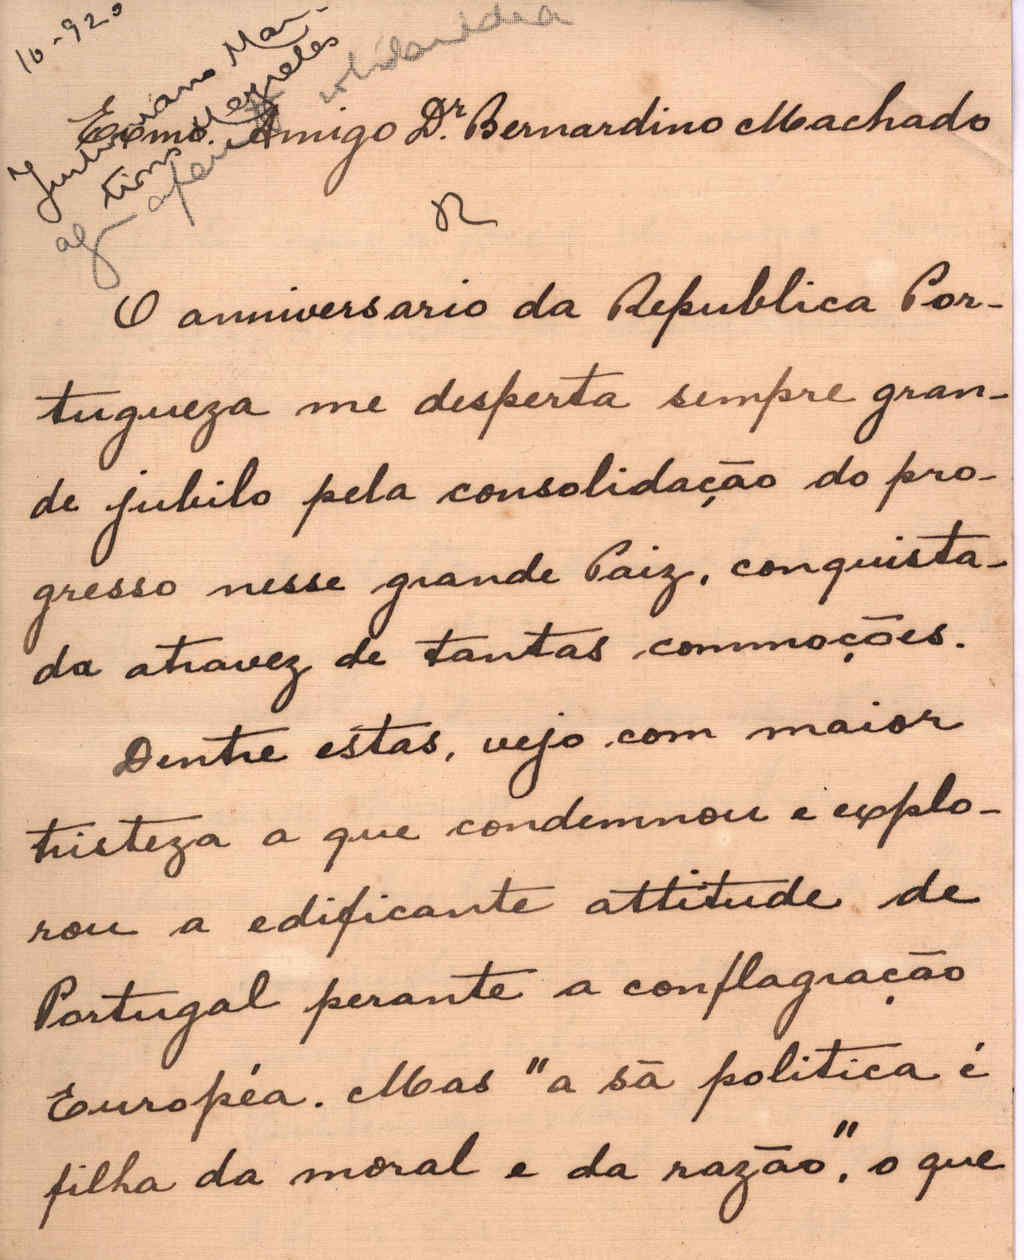 10-920
Juliano Mar-
tins Meyrelles
ag-
Exmo. Amigo Dr. Bernardino Machado
O anniversario da Republica Por-
tugueza me desperta sempre gran-
de jubilo pela consolidação do pro-
gresso nesse grande Paiz, conquista-
da atravez de tantas commoções.
Dentre estas, vejo com maior
tristeza a que condemnou e explo-
rou a edificante attitude de
Portugal perante a conflagração
Européa. Mas "a sã politica é
filha da moral e da razão", o que